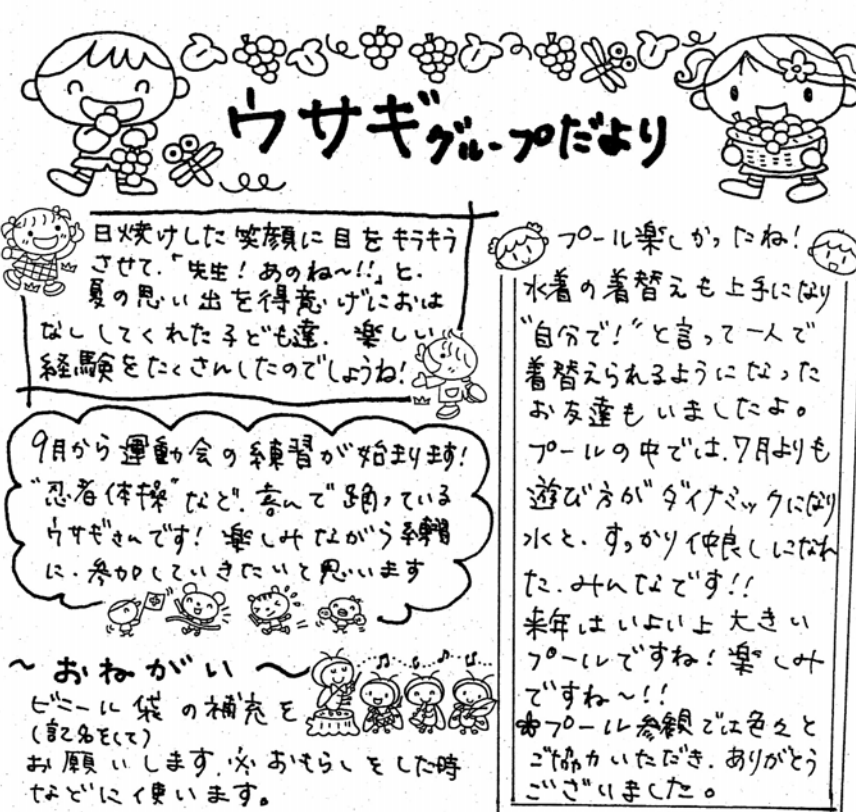 ウサギグループだより
日焼けした笑顔に目をキラキラ
させて、「先生！あのね〜!!」と、
夏の思い出を得意げにおは
なししてくれた子ども達、楽しい
経験をたくさんしたのでしょうね！
9月から運動会の練習が始まります！
"忍者体操"など、喜んで踊っている
ウサギさんです！楽しみながら練習
に、参加していきたいと思います
〜おねがい〜
ビニール袋の補充を
(記名をして)
お願いします。※おもらしをした時
などに使います。
プール楽しかったね！
水着の着替えも上手になり
"自分で！"と言って一人で
着替えられるようになった
お友達もいましたよ。
プールの中では、7月よりも
遊び方がダイナミックになり
水と、すっかり仲良しになれ
た、みんなです!!
来年はいよいよ大きい
プールですね！楽しみ
ですね〜!!
❀プール参観では色々と
ご協力いただき、ありがとう
ございました。